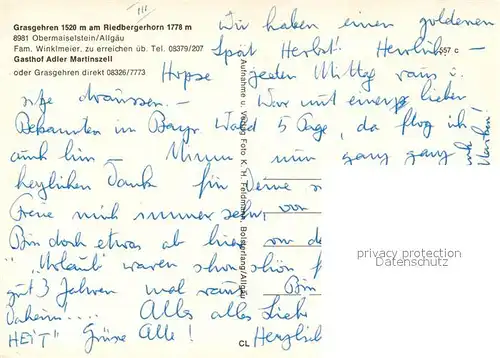 Grasgehren 1520 m am Riedbergerhorn 1778 m
8981 Obermaiselstein/Allgäu
Fam. Winklmeier. zu erreichen üb. Tel. 08379/207
Gasthof Adler Martinszell
oder Grasgehren direkt 08326/7773
557 c
Wir haben einen goldenen
Spät Herbst! Herrlich –
Hopse jeden Mittag raus u.
sitze draussen. – War mit einer lieben
Bekannten im Bayr. Wald 5 Tage, da flog ich
auch hin – Nimm nun ganz ganz
herzlichen Dank für Deine
Freue mich immer sehr, von
Bin doch etwas ab hier von
"Urlaub" waren schon schön
gut 3 Jahren mal raus Bin
Daheim!.... Alles alles Liebe
HEIT" Grüsse Alle! Herzlich
Aufnahme u. Verlag Foto K. H. Feldmann, Bolsterlang/Allgäu
CL
privacy protection
DARKENSCHMID.COM